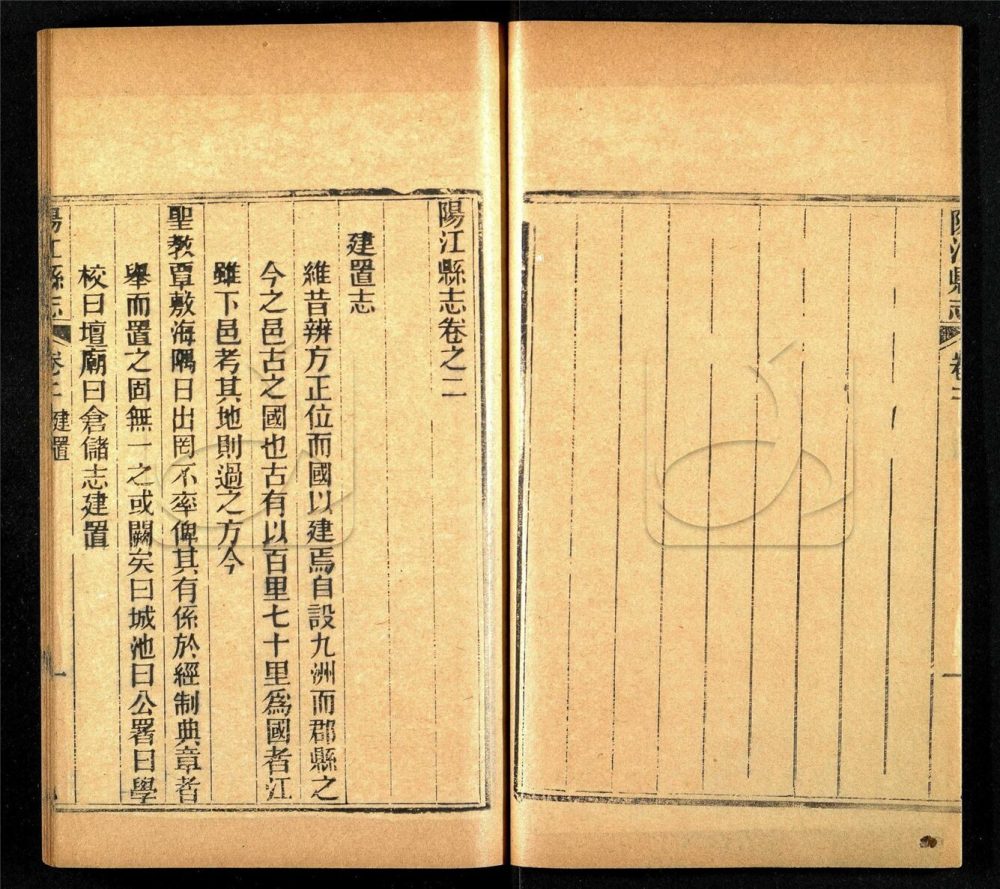 陽江縣志 卷二
陽江縣志卷之二
建置志
維昔辨方正位而國以建焉自設九洲而郡縣之
今之邑古之國也古有以百里七十里爲國者江
雖下邑考其地則過之方今
聖教覃敷海隅日出罔不率俾其有係於經制典章者
舉而置之固無一之或闕矣曰城池曰公署曰學
校曰壇廟曰倉儲志建置
陽江縣志 卷二 建置 一